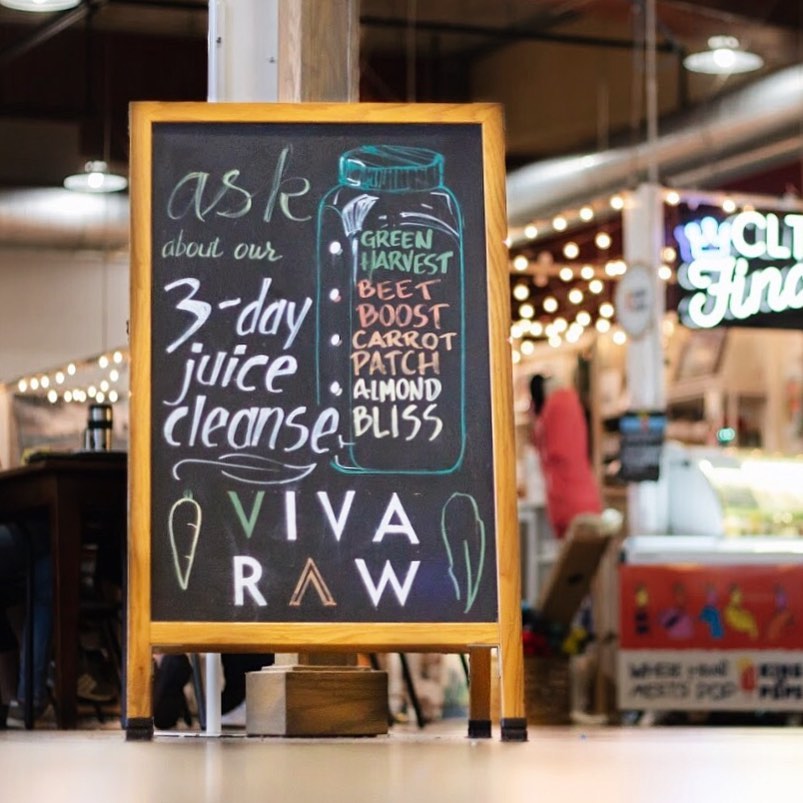 ask
about our
3-day
juice
cleanse.
GREEN
HARVEST
BEET
BOOST
CARROT
PATCH
ALMOND
BLISS
VIVA
RAW
CLT
WHERE
MEETS POP
KING